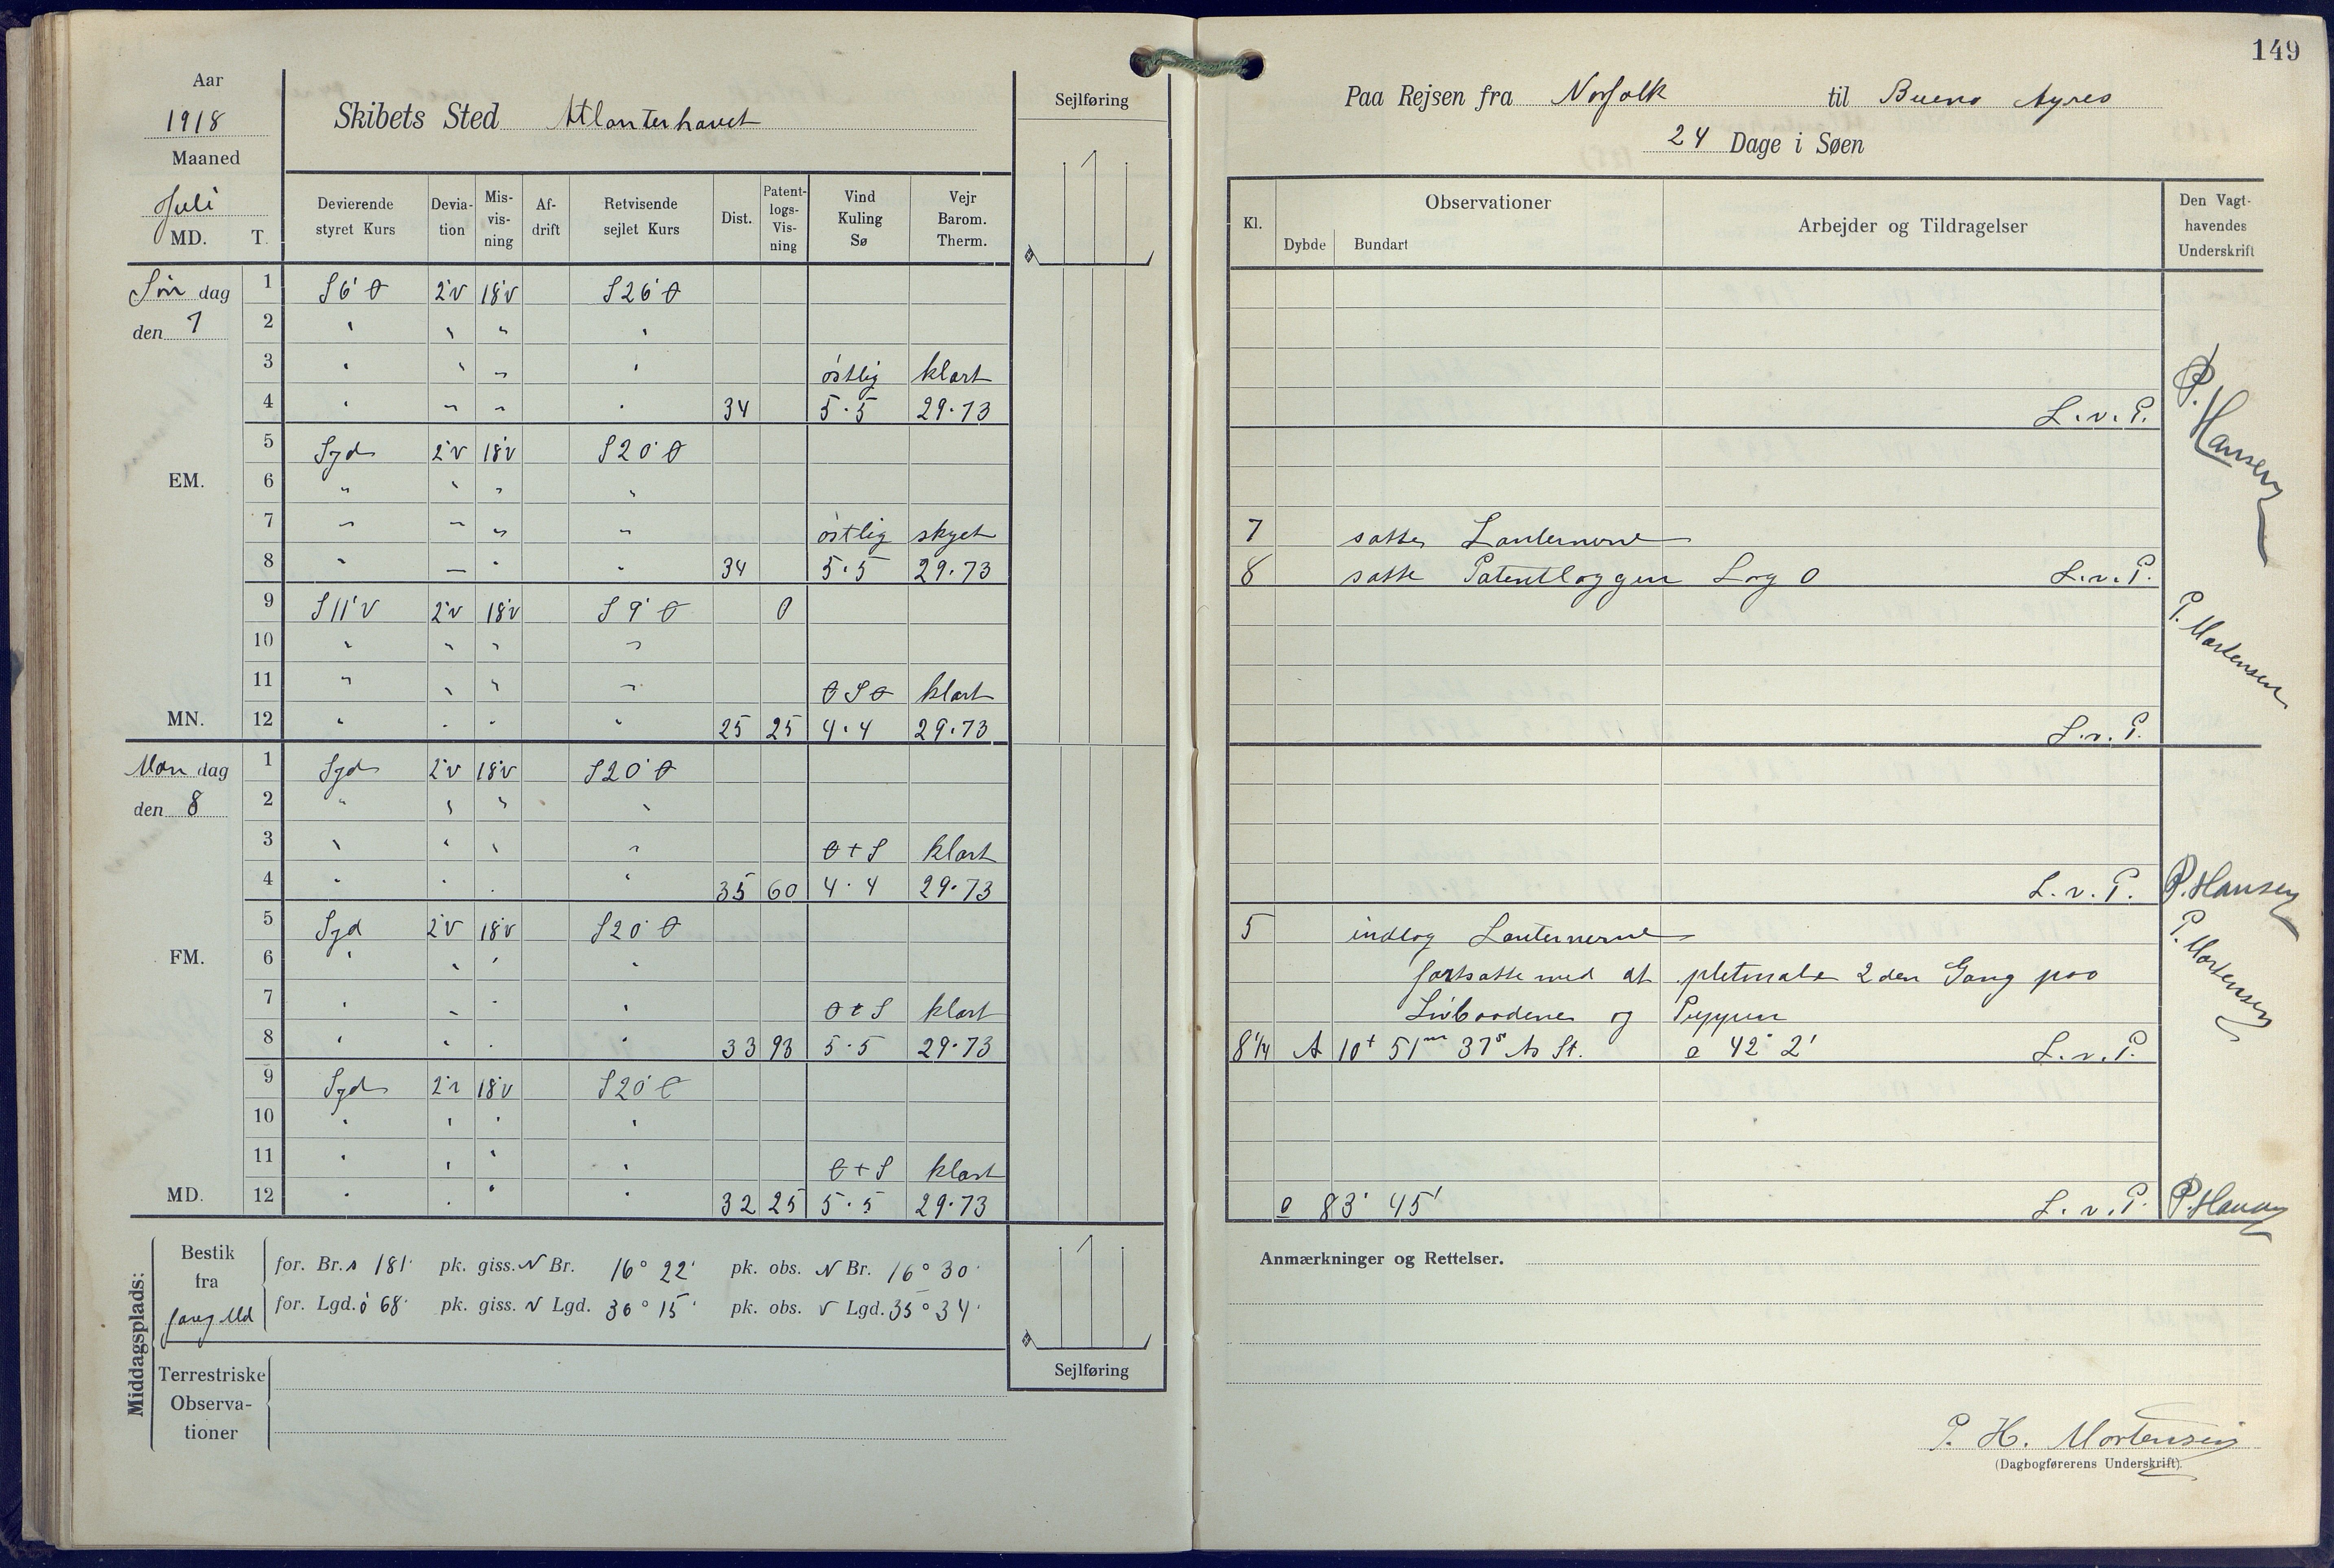 149
Aar
1918
Maaned
Juli
MD. T.
Skibets Sted Atlanterhavet
Sejlføring
Devierende styret Kurs | Devia-tion | Mis-vis-ning | Af-drift | Retvisende sejlet Kurs | Dist. | Patent-logs-Vis-ning | Vind Kuling Sø | Vejr Barom. Therm.
Søn dag 1 S6°Ø 2°V 18°V S26°Ø
den 7 2 " " " "
3 " " " " østlig klart
4 " " " " 34 5·5 29·73
5 Syd 2°V 18°V S20°Ø
EM. 6 " " " "
7 " " " " østlig skyet
8 " " " " 34 5·5 29·73
9 S11°V 2°V 18°V S9°Ø 0
10 " " " "
11 " " " " ØSØ klart
MN. 12 " " " " 25 25 4·4 29·73
Man dag 1 Syd 2°V 18°V S20°Ø
den 8 2 " " " "
3 " " " " Ø t S klart
4 " " " " 35 60 4·4 29·73
5 Syd 2°V 18°V S20°Ø
FM. 6 " " " "
7 " " " " Ø t S klart
8 " " " " 33 93 5·5 29·73
9 Syd 2°V 18°V S20°Ø
10 " " " "
11 " " " " Ø t S klart
MD. 12 " " " " 32 25 5·5 29·73
Middagsplads:
Bestik fra forrg Md
for. Br. s 181' pk. giss. N Br. 16° 22' pk. obs. N Br. 16° 30'
for. Lgd. ö 68' pk. giss. V Lgd. 36° 15' pk. obs. V Lgd. 35° 34'
Terrestriske Observa-tioner
Sejlføring
Paa Rejsen fra Norfolk til Bueno Ayres
24 Dage i Søen
Kl. | Observationer | Dybde | Bundart | Arbejder og Tildragelser | Den Vagt-havendes Underskrift
L.v.P. P. Hansen
7 satte Lanternerne
8 satte Patentloggen Log 0 L.v.P.
P. Mortensen
L.v.P.
L.v.P. P. Hansen
5 indtog Lanternerne
fortsatte med at pletmale 2den Gang paa P. Mortensen
Livbaadene og Puppen
8¼ A 10t 51m 37s As St. o 42° 2' L.v.P.
o 83° 45' L.v.P. P. Hansen
Anmærkninger og Rettelser.
P. H. Mortensen
(Dagbogførerens Underskrift).